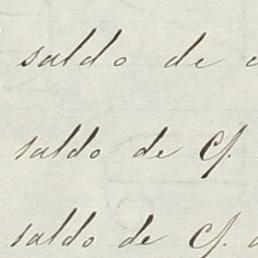 saldo de
saldo de Cf.
saldo de Cf.